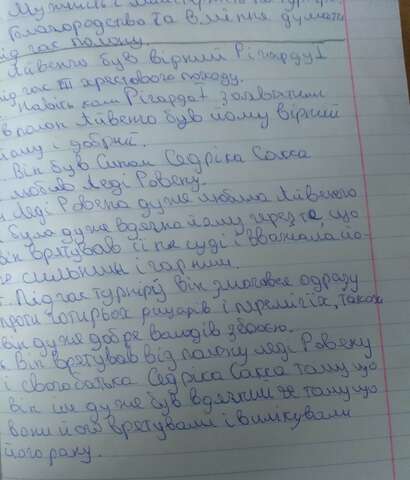 Мужність і майстерність на турнірі
благородство та вміння думати
під час полону.
Айвенго був вірний Річарду I
під час III хрестового походу.
Навіть коли Річарда I захватили
в полон Айвенго був йому вірний
йому і добрий.
Він був Сином Седріка Сакса
любив Леді Ровену.
Леді Ровена дуже любила Айвенго
Була дуже вдячна йому через те, що
він врятував її на суді і вважала йо-
го сильним і гарним.
Під час турніру він змагався одразу
проти чотирьох рицарів і переміг їх, також
він дуже добре володів зброєю.
Він врятував від полону леді Ровену
і свого батька Седріка Сакса тому що
він їм дуже був вдячний за тому що
вони його врятували і вилікували
його рану.